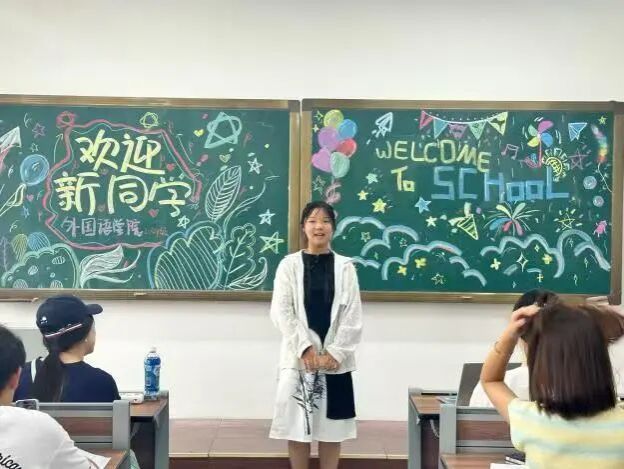 欢迎
新同学
外国语学院
WELCOME
To SCHooL